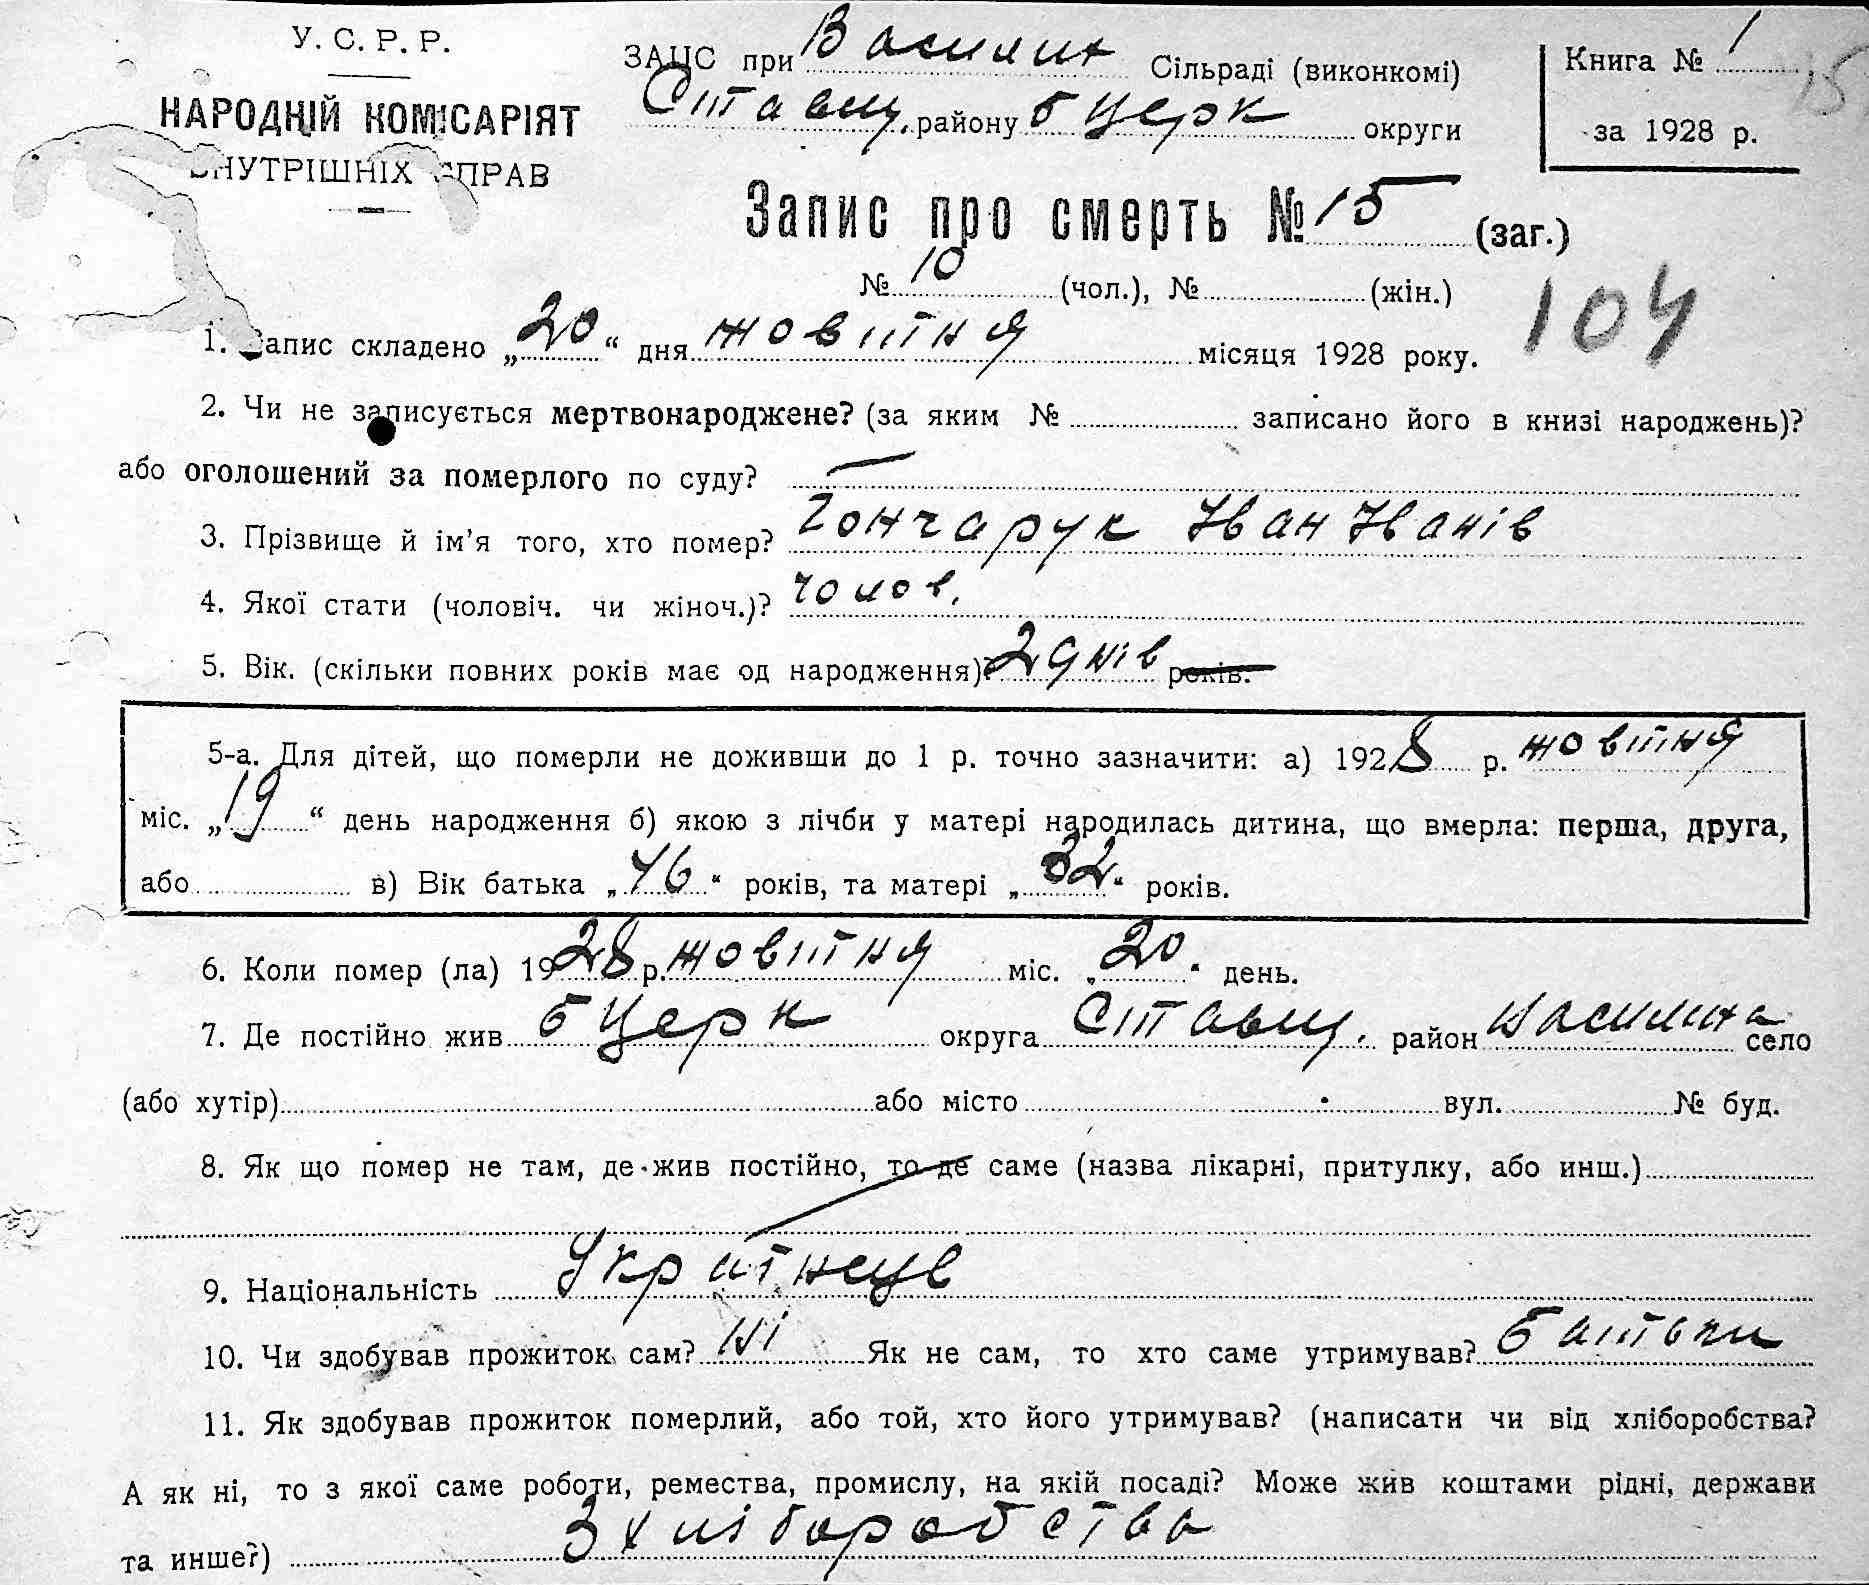 У. С. Р. Р.
НАРОДНІЙ КОМІСАРІЯТ
ВНУТРІШНІХ СПРАВ
ЗАЦС при Василих Сільраді (виконкомі)
Ставищ. району б церк округи
Книга № 1
за 1928 р.
15
Запис про смерть № 15 (заг.)
№ 10 (чол.), № (жін.)
104
1. Запис складено „20“ дня жовтня місяця 1928 року.
2. Чи не записується мертвонароджене? (за яким № записано його в книзі народжень)?
або оголошений за померлого по суду? —
3. Прізвище й ім’я того, хто помер? Гончарук Іван Іванів
4. Якої стати (чоловіч. чи жіноч.)? чолов.
5. Вік. (скільки повних років має од народження)? 2 днів років.
5-а. Для дітей, що померли не доживши до 1 р. точно зазначити: а) 1928 р. жовтня
міс. „19“ день народження б) якою з лічби у матері народилась дитина, що вмерла: перша, друга,
або в) Вік батька „46“ років, та матері „32“ років.
6. Коли помер (ла) 1928 р. жовтня міс. „20“ день.
7. Де постійно жив б церк округа Ставищ. район село
(або хутір) або місто вул. № буд.
8. Як що помер не там, де жив постійно, то де саме (назва лікарні, притулку, або инш.)
9. Національність Українець
10. Чи здобував прожиток сам? ні Як не сам, то хто саме утримував? батьки
11. Як здобував прожиток померлий, або той, хто його утримував? (написати чи від хліборобства?
А як ні, то з якої саме роботи, ремества, промислу, на якій посаді? Може жив коштами рідні, держави
та инше?) З хліборобства